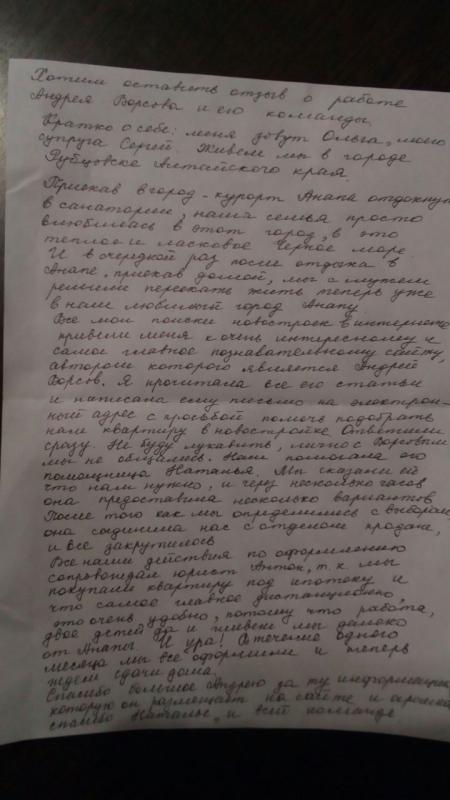 Хотим оставить отзыв о работе
Андрея Ворсова и его команды.
Кратко о себе: меня зовут Ольга, моего
супруга Сергей. Живем мы в городе
Рубцовске Алтайского края.
Приехав в город-курорт Анапа отдохнуть
в санатории, наша семья просто
влюбилась в этот город, в это
теплое и ласковое Черное море.
И в очередной раз после отдыха в
Анапе, приехав домой, мы с мужем
решили переехать жить теперь уже
в наш любимый город Анапу.
Все мои поиски новостроек в интернете
привели меня к очень интересному и
самое главное познавательному сайту,
автором которого является Андрей
Ворсов. Я прочитала все его статьи
и написала ему письмо на электрон-
ный адрес с просьбой помочь подобрать
нам квартиру в новостройке. Ответили
сразу. Не буду лукавить, лично с Ворсовым
мы не общались. Нам помогала его
помощница Наталья. Мы сказали ей
что нам нужно, и через несколько часов
она предоставила несколько вариантов
После того как мы определились с выбором,
она соединила нас с отделом продаж,
и все закрутилось
Все наши действия по оформлению
сопровождал юрист Антон, т.к мы
покупали квартиру под ипотеку и
что самое главное дистанционно,
это очень удобно, потому что работа,
двое детей да и живем мы далеко
от Анапы. И ура! В течение одного
месяца мы все оформили и теперь
ждем сдачи дома.
Спасибо большое Андрею за ту информацию,
которую он размещает на сайте и огромное
спасибо Наталье, и всей команде